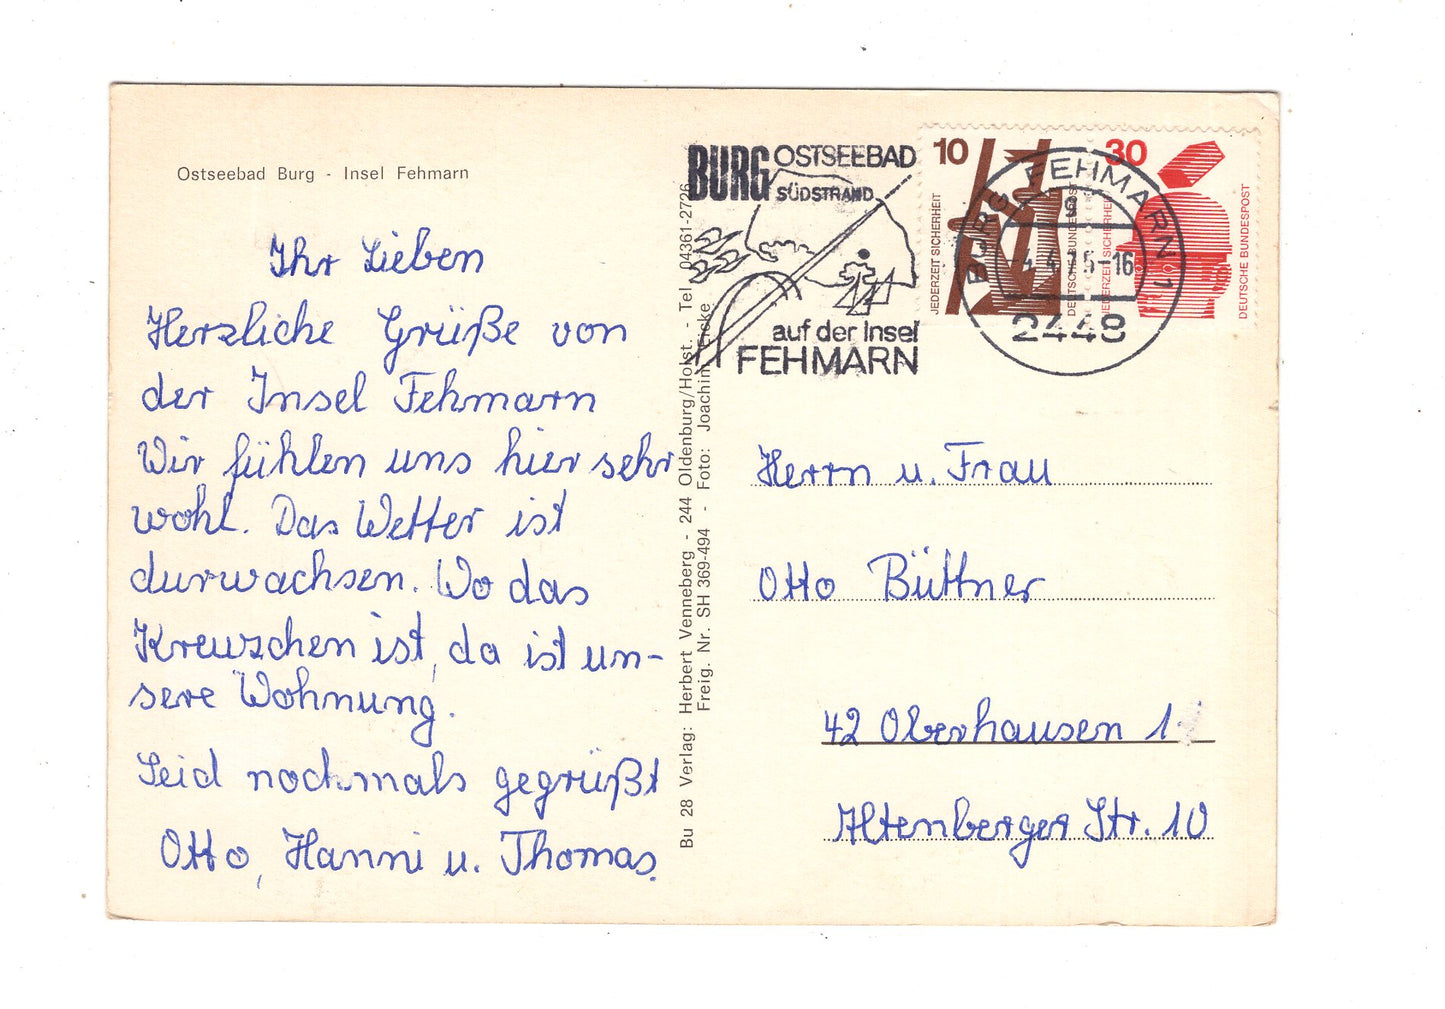 Ostseebad Burg - Insel Fehmarn
Ihr Lieben
Herzliche Grüße von
der Insel Fehmarn
Wir fühlen uns hier sehr
wohl. Das Wetter ist
durwachsen. Wo das
Kreuzchen ist, da ist un-
sere Wohnung.
Seid nochmals gegrüßt
Otto, Hanni u. Thomas.
Bu 28 Verlag: Herbert Venneberg - 244 Oldenburg/Holst. - Tel. 04361-2726
Freig. Nr. SH 369-494 - Foto: Joachim
BURG OSTSEEBAD
SÜDSTRAND
auf der Insel
FEHMARN
10
JEDERZEIT SICHERHEIT
DEUTSCHE BUNDESPOST
30
JEDERZEIT SICHERHEIT
DEUTSCHE BUNDESPOST
BURG FEHMARN 1
-16
2448
Herrn u. Frau
Otto Büttner
42 Oberhausen 1
Altenberger Str. 10